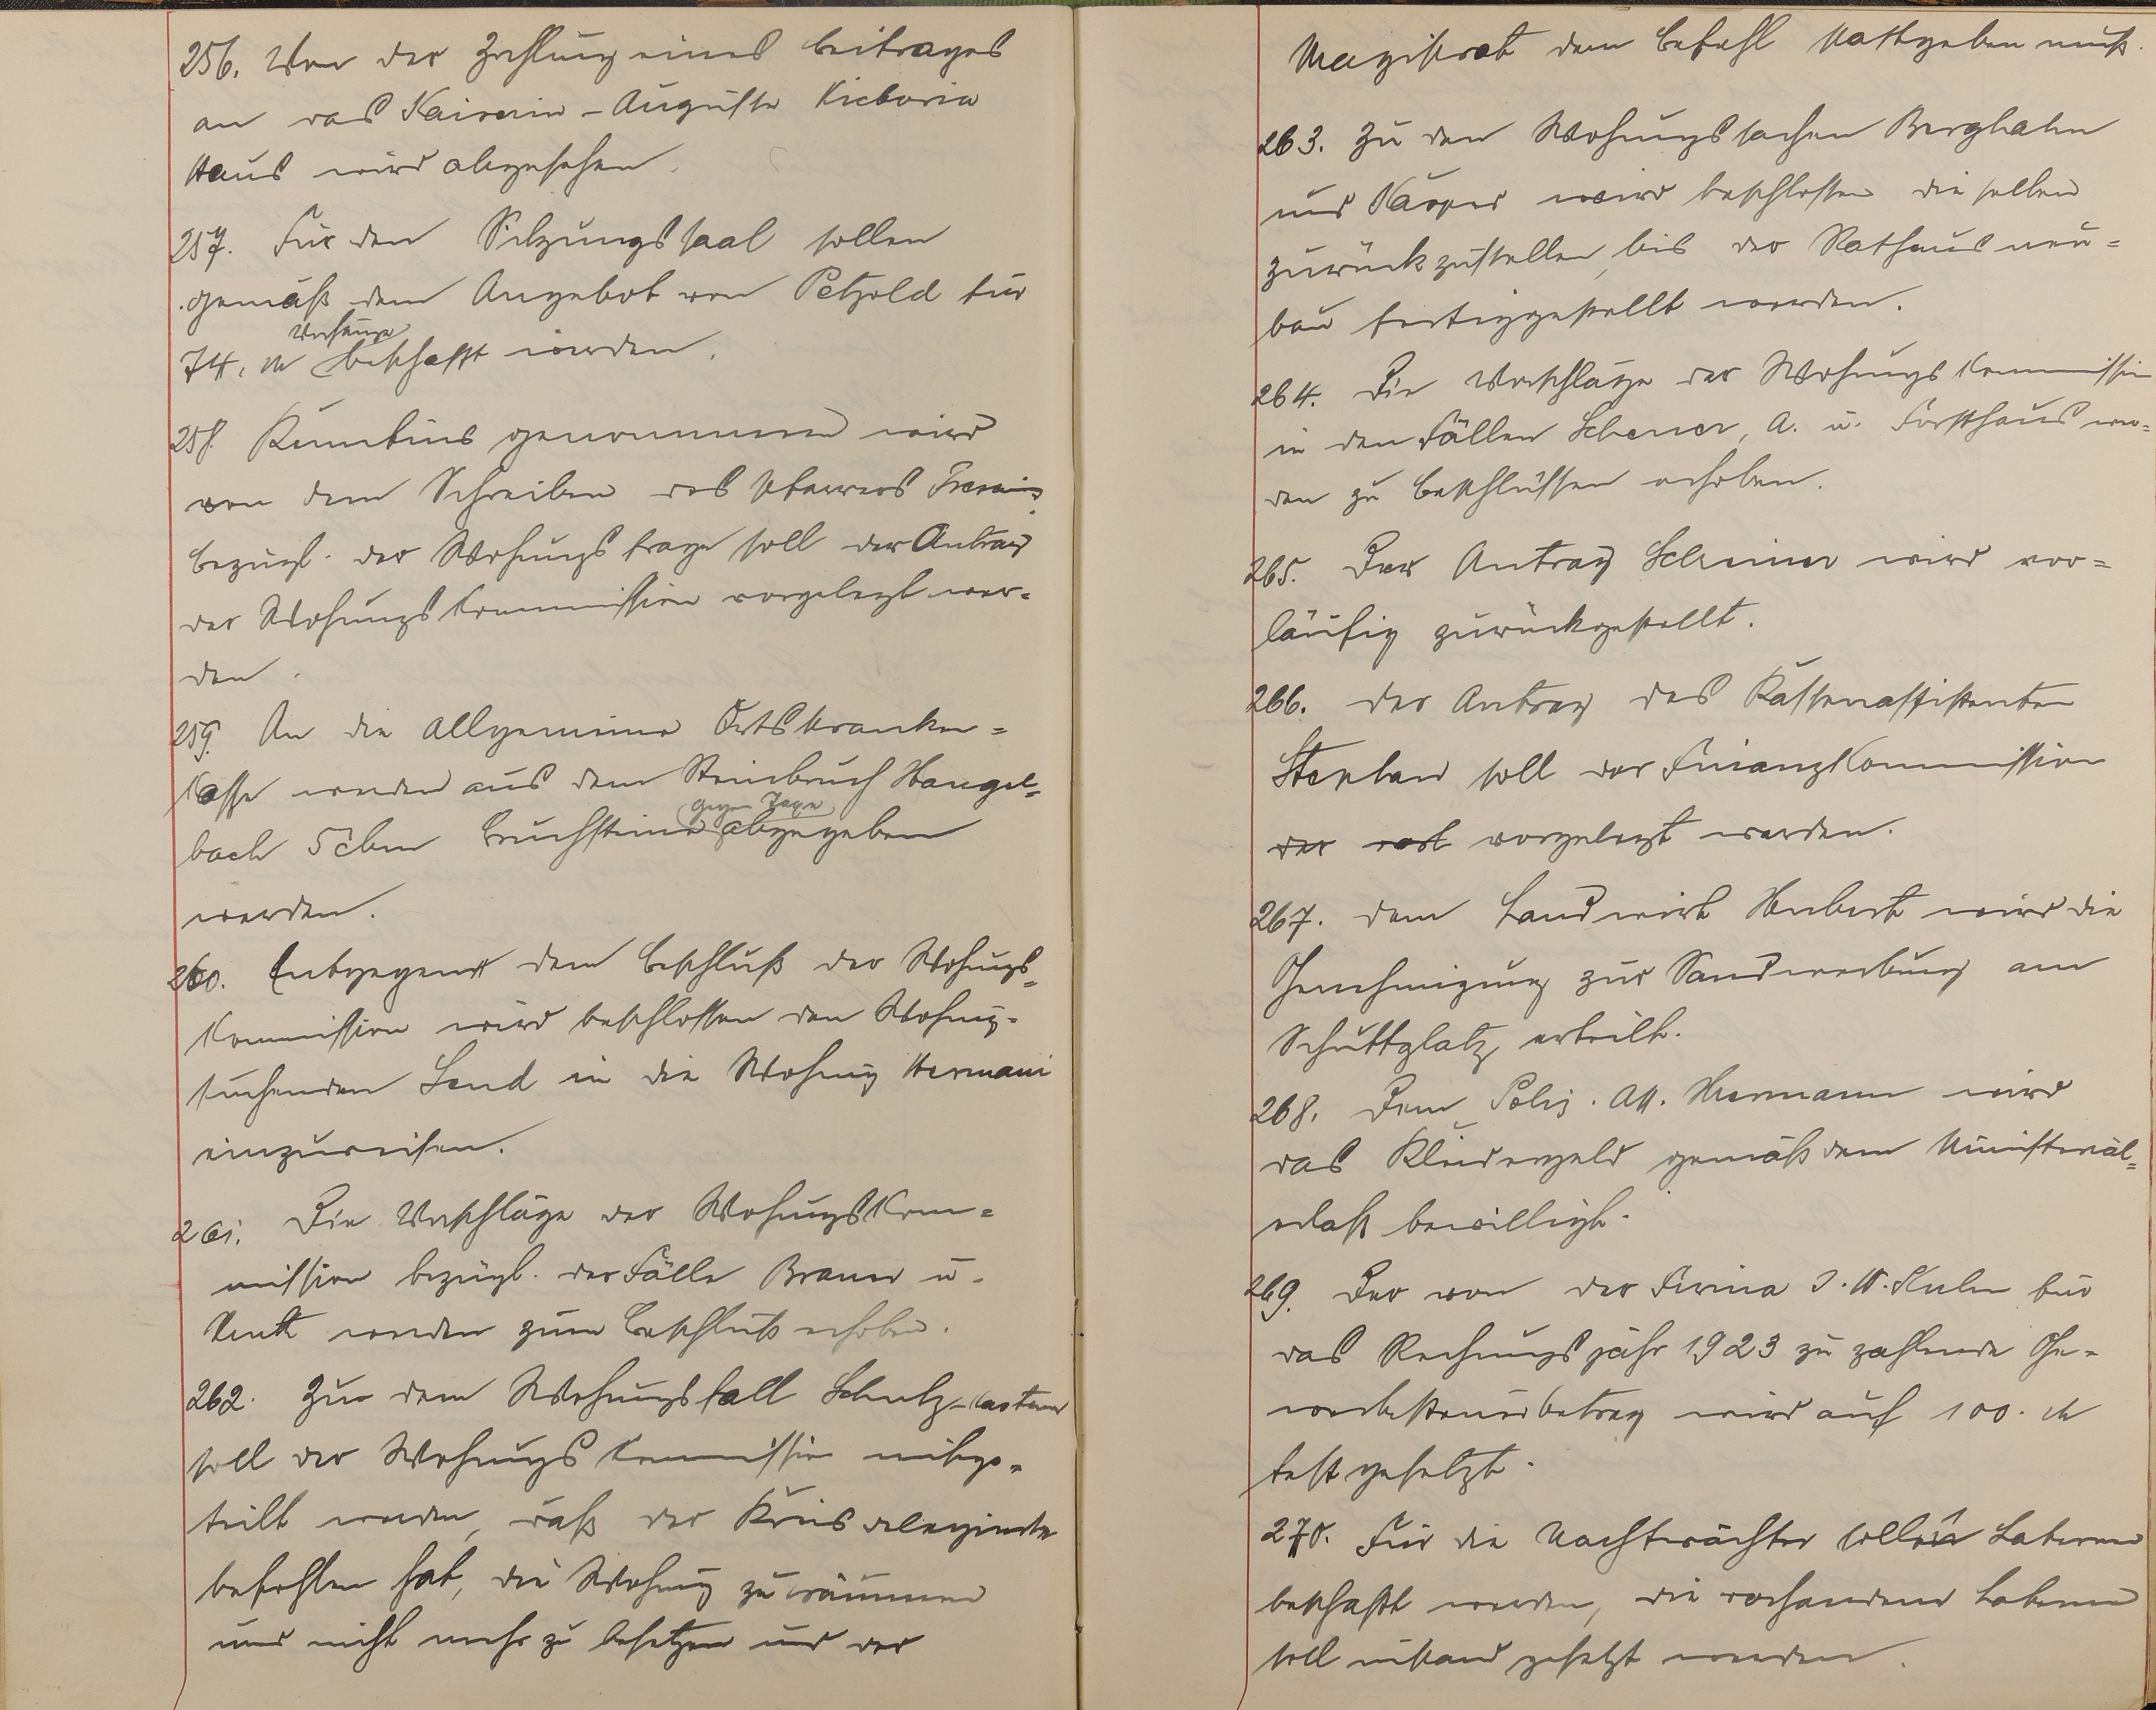 256. Von der Zahlung eines Beitrages
an das Kaiserin-Auguste Victoria
Haus wird abgesehen.
257. Für den Sitzungssaal sollen
gemäß dem Angebot von Petzold für
Vorhänge
74, M beschafft werden.
258. Kenntnis genommen wird
von dem Schreiben des Pfarrers
bezügl. der Wohungsfrage soll der Antrag
der Wohungskommission vorgelegt wer-
den.
259. An die Allgemeine Ortskranken-
kasse werden aus dem Steinbruch Hangel-
gegen Taxe
bach 5 cbm Bruchsteine abgegeben
werden.
260. Entgegengesetzt dem Beschluß der Wohungs-
kommission wird beschlossen den Wohung-
suchenden Send in die Wohnung Hermani
einzuweisen.
261. Die Vorschläge der Wohungskom-
mission bezügl. der Fälle Braun u.
werden zum Beschluß erhoben.
262. Zu dem Wohungsfall Schulz-
soll der Wohungskommission mitge-
teilt werden, daß der Kreisdelegierte
befohlen hat, die Wohnung zu räumen
und nicht mehr zu besetzen und der
Magistrat dem Befehl stattgeben muß.
263. Zu den Wohungssachen Berghahn
und Kasper wird beschlossen dieselben
zurückzustellen, bis der Rathausneu-
bau fertiggestellt worden.
264. Die Vorschläge der Wohungskommission
in den Fällen Scherer, A. u. Forsthaus wer-
den zu Beschlüssen erhoben.
265. Der Antrag Schreiner wird vor-
läufig zurückgestellt.
266. Der Antrag des Kassenassistenten
Stephan soll der Finanzkommission
der vorgelegt werden.
267. Dem Landwirt Hubert wird die
Genehmigung zur Sandwerbung am
Schuttplatz erteilt.
268. Dem Poliz. Ass. Hermann wird
das Kleidergeld gemäß dem Ministerial-
erlaß bewilligt.
269. Der von der Firma J. W. Kuhn für
das Rechungsjahr 1923 zu zahlende Ge-
werbesteuerbetrag wird auf 100. M
festgesetzt.
270. Für die Nachtwächter sollen Laternen
beschafft werden, die vorhandene Laterne
soll instand gesetzt werden.